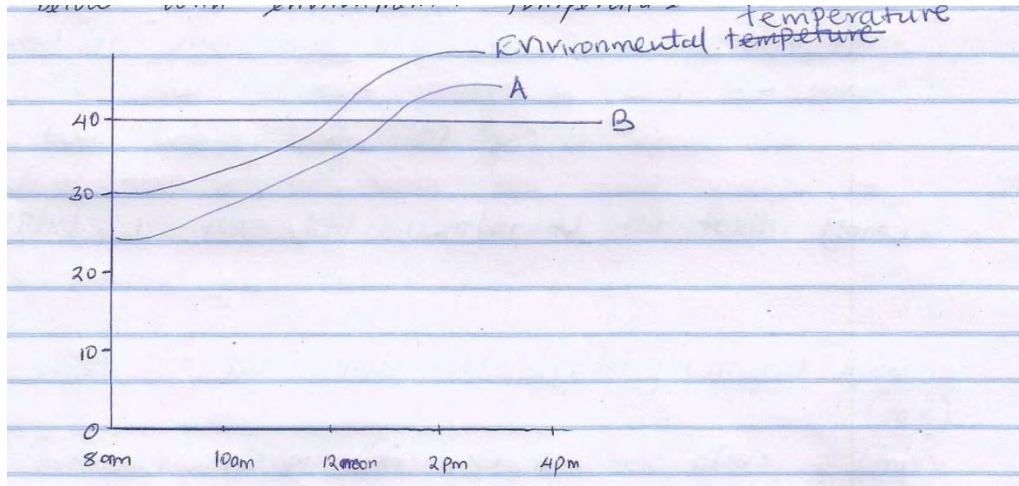 temperature
Environmental tempeture
A
40 B
30
20
10
0
8am 10am 12noon 2pm 4pm